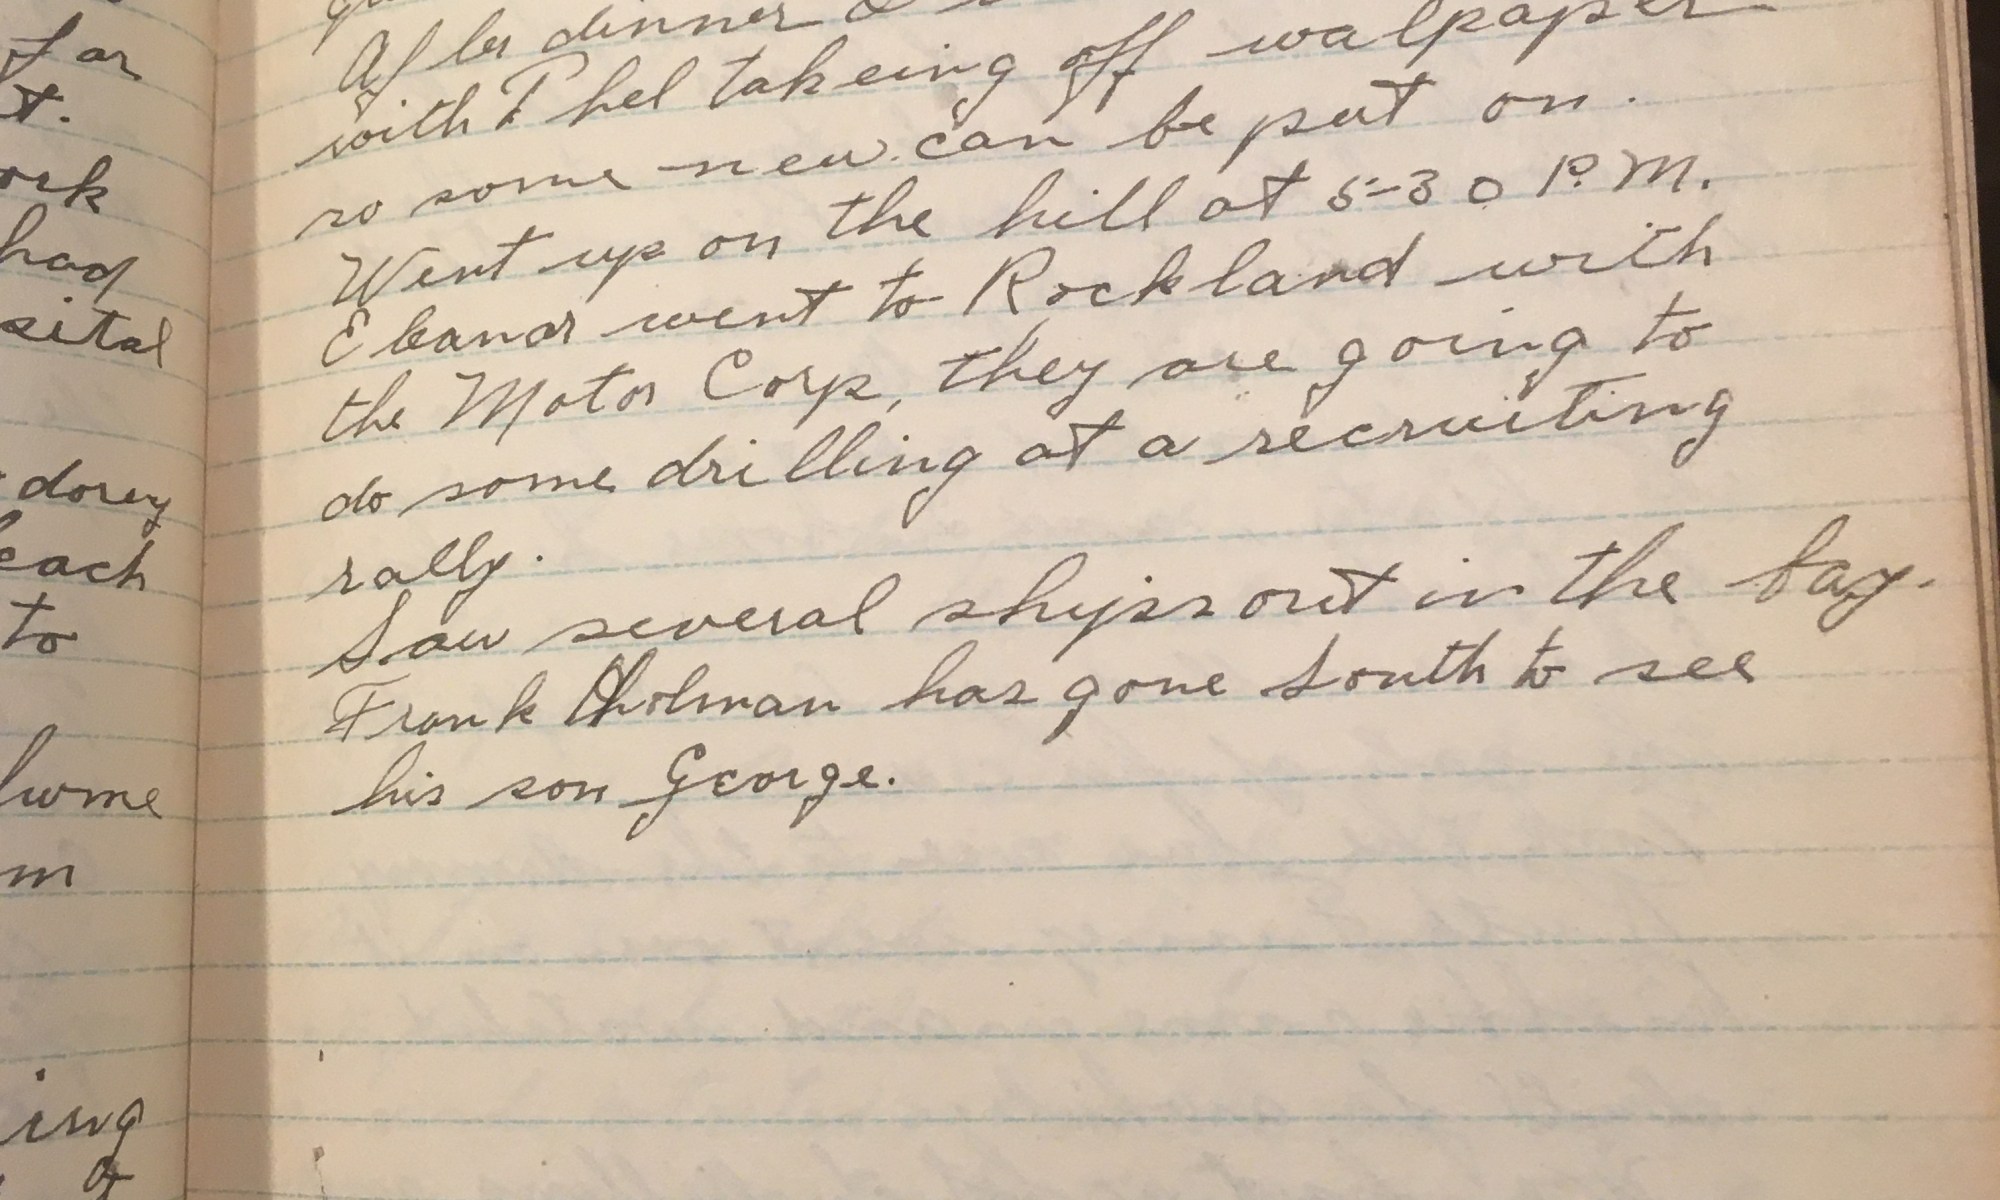 far
t.
ork
had
sital
dorey
each
to
home
m
ing
After dinner I
with Phel takeing off walpaper
so some new can be put on.
Went up on the hill at 5-30 P.M.
Eleanor went to Rockland with
the Motor Corp, they are going to
do some drilling at a recruiting
rally.
Saw several ships out in the bay.
Frank Holman has gone South to see
his son George.